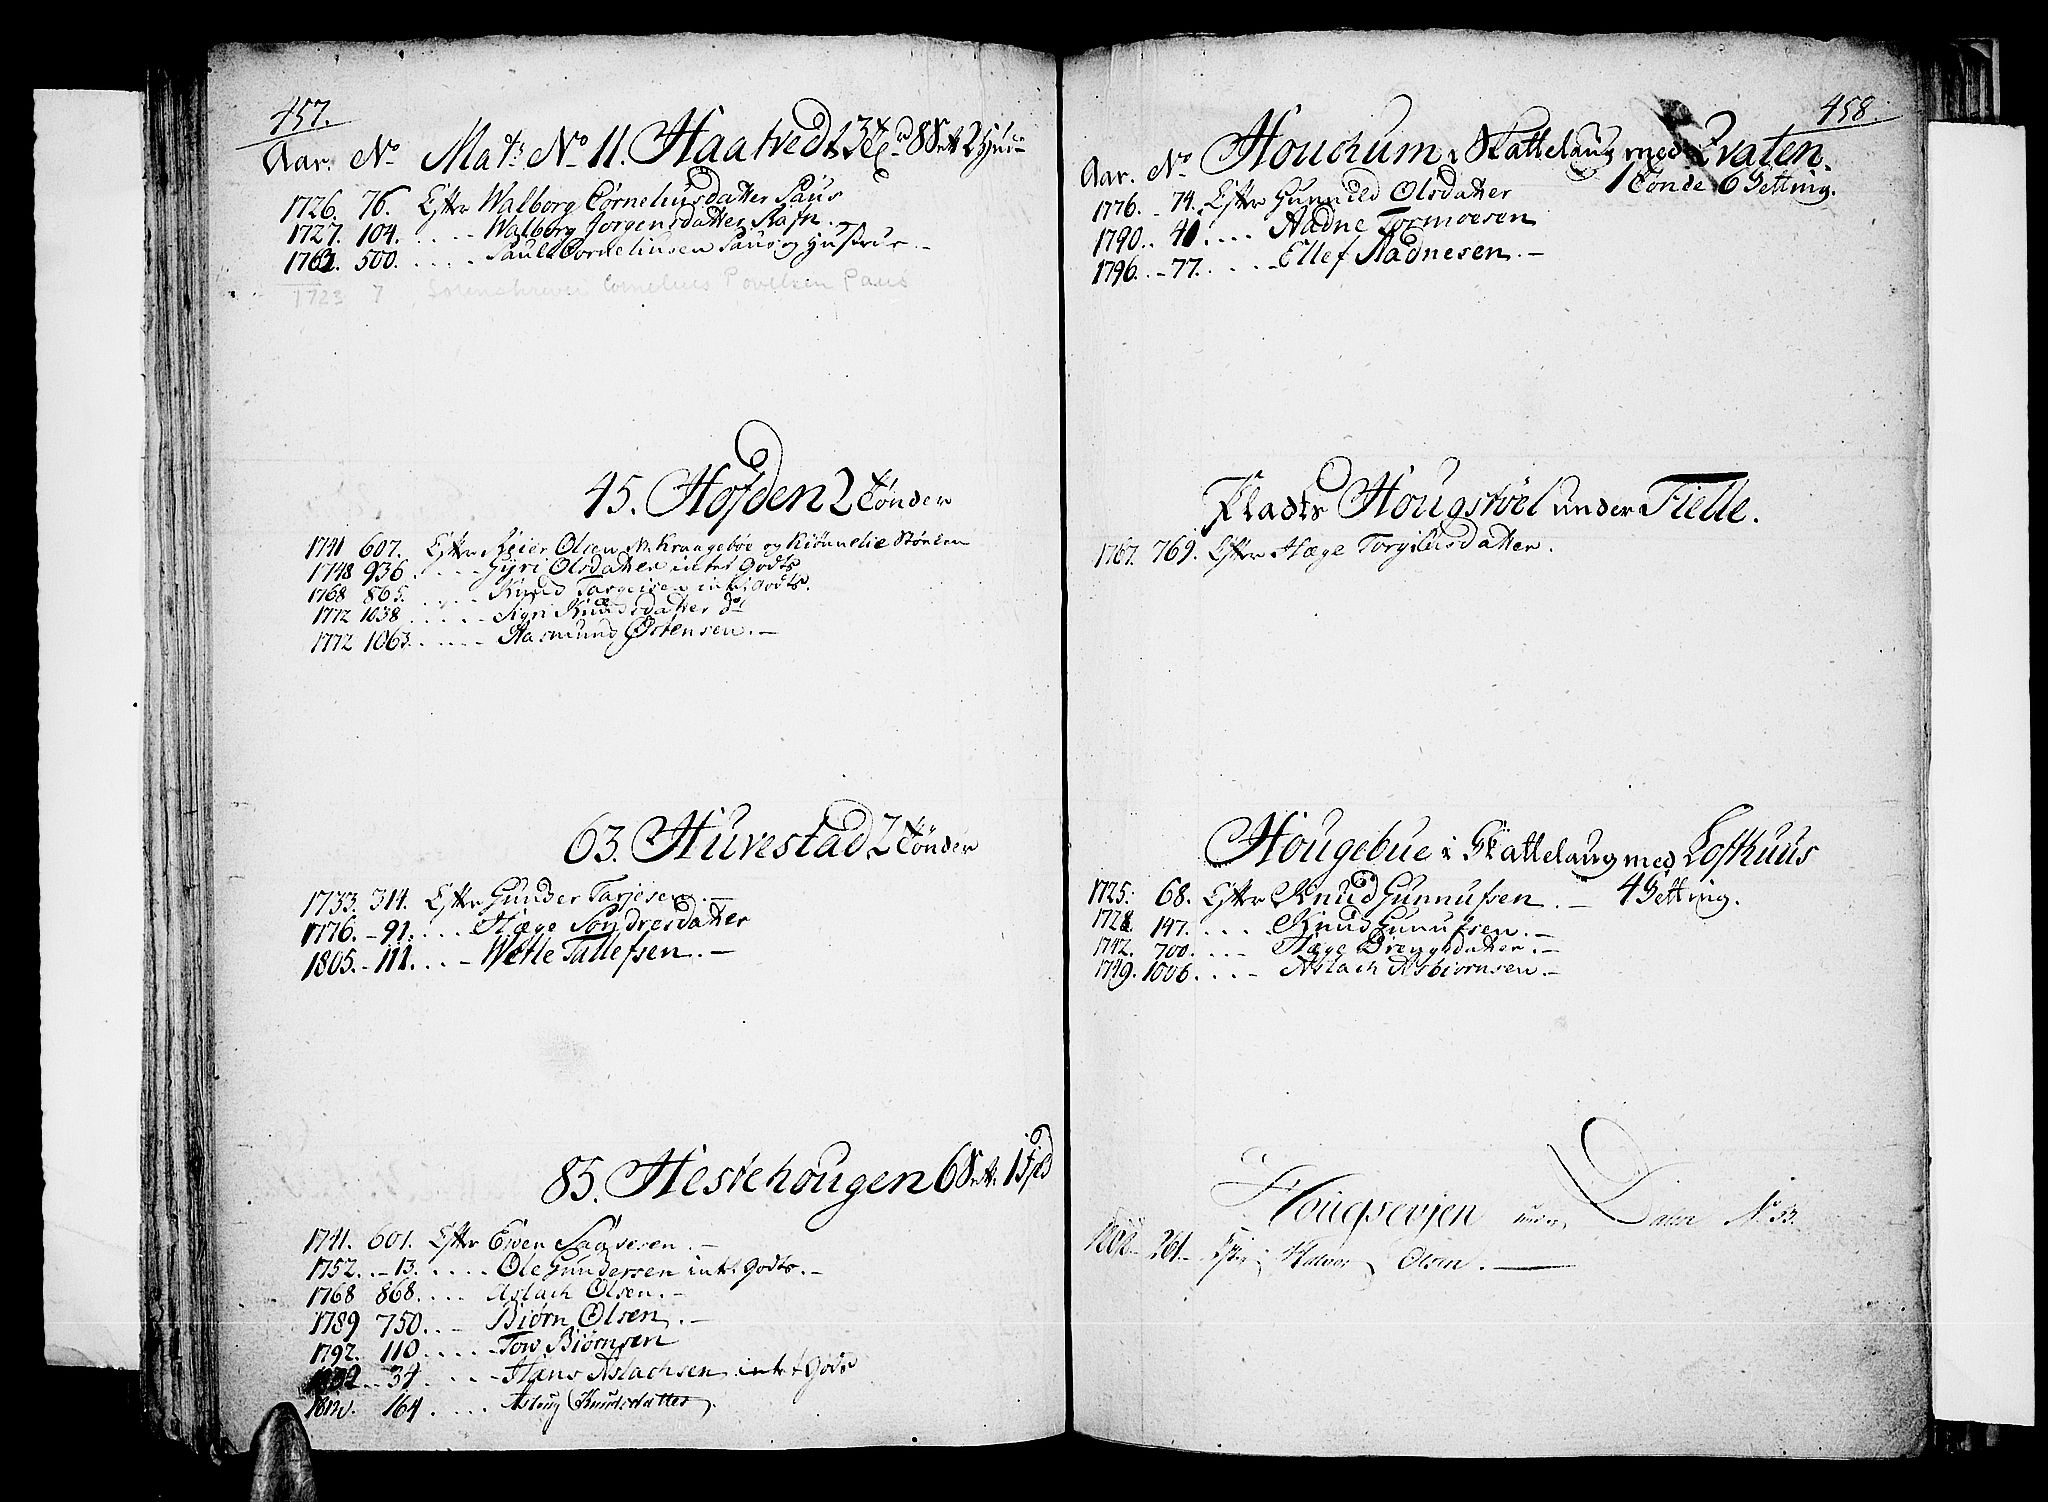 457.
Aar. No Mat: No 11. Haatvedt 3 8 Sett. 2
1726. 76. Efter Walborg Corneliusdatter Paus
1727. 104. . . . . - Walborg Jørgensdatter Rafn . -
1762. 500. . . . . . Paul Corneliusen Paus og Hustrue. -
1723 7 Sorenskriver Cornelius Povelsen Paus
45. Hofden 2 Tönder
1741 607. Efter Reier Olsen og Kiönnelie
1748 936. . . . . Gijri Olsdatter intet Godts
1768 865. . . . . . Knud Targeisen intet Godts.
1772 1038 . . . . . . Sigri Knudsdatter do
1772 1063. . . . . . Aasmund Östensen. -
63. Hurestad 2 Tönder
1733. 314. Efter Gunder Tarjesen. -
1776. - 91. . . . . Hæge Sondresdatter
1805. - 111. . . . - Wetle Tallefsen. -
85. Hestehougen 6 Sett. 1 Fjd
1741. 601. Efter Even Saavesen. -
1752. . - 13. . . . . . Ole Gundersen intet Godts. -
1768 868. . . . . Aslach Olsen. -
1789 750. . . - Biörn Olsen. -
1792. 110 . . . . . Tov Biörnsen
34. . . . . . Hans Aslachsen intet Gods
164. . . . . . Aslaug Knudsdatter.
458.
Aar. No Houchum i Skattelaug med Qvaten.
1 Tonde 6 Setting.
1776. - 74. Efter Gunnild Olsdatter
1790. . 41. . . . Aadne Tormoesen
1796. . - 77. . . . . - Ellef Aadnesen. -
Plads Hougstöel under Fielle.
1767. 769. Efter Hæge Torgilusdatter.
Hougebue i Skattelaug med Lofthuus
1725. 68. Efter Knud Gunnufsen. - 4 Setting.
1728 147. . . . . Knud Gunufsen. -
1742. 700. . . . . Hæge datter. -
1749. 1006. . . . . - Aslach Asbiörnsen -
Hougsevjen under Dalen No 33.
1808 261 - Efter Halvor Olsen.